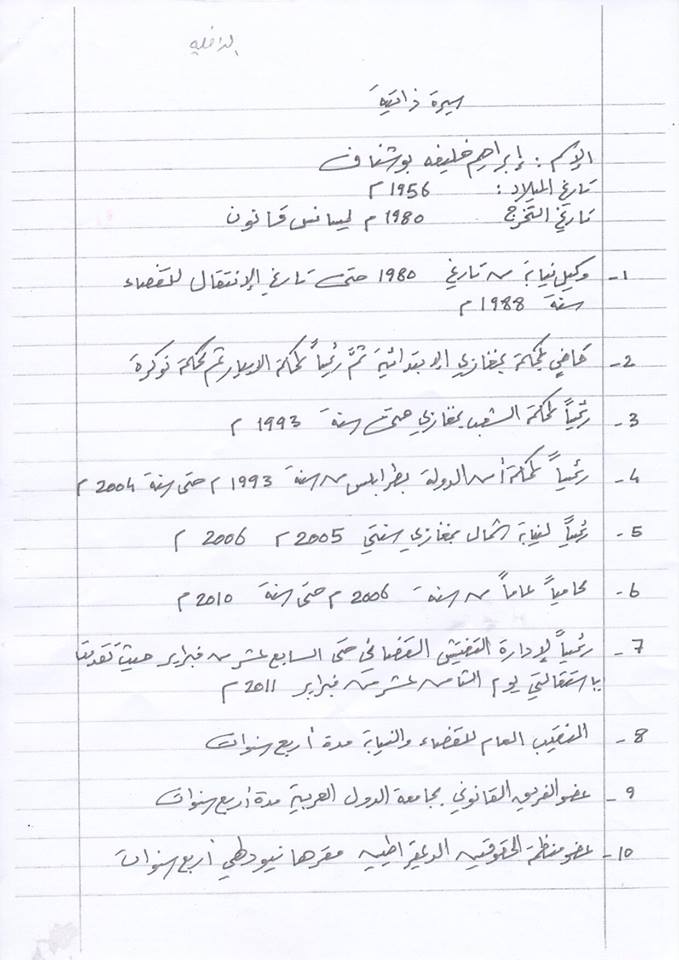 الداخلية
سيرة ذاتية
الإسم : إبراهيم خليفه بوشناف
تاريخ الميلاد : 1956 م
تاريخ التخرج 1980 م ليسانس قانون
1- وكيل نيابة من تاريخ 1980 حتى تاريخ الإنتقال للقضاء
سنة 1988 م
2- قاضي بمحكمة بنغازي الإبتدائية ثمَّ رئيساً لمحكمة الابيار ثم محكمة توكرة
3- رئيساً لمحكمة الشعب بنغازي حتى سنة 1993 م
4- رئيساً لمحكمة أمن الدولة بطرابلس من سنة 1993 م حتى سنة 2004 م
5- رئيساً لنيابة شمال بنغازي سنتي 2005 م 2006 م
6- محامياً عاماً من سنة 2006 م حتى سنة 2010 م
7- رئيساً لإدارة التفتيش القضائي حتى السابع عشر من فبراير حيث تقدمت
باستقالتي يوم الثامن عشر من فبراير 2011 م
8- النقيب العام للقضاء والنيابة مدة أربع سنوات
9- عضو الفريق القانوني بجامعة الدول العربية مدة أربع سنوات
10- عضو منظمة الحقوقيين الديمقراطيين مقرها نيودلهي أربع سنوات